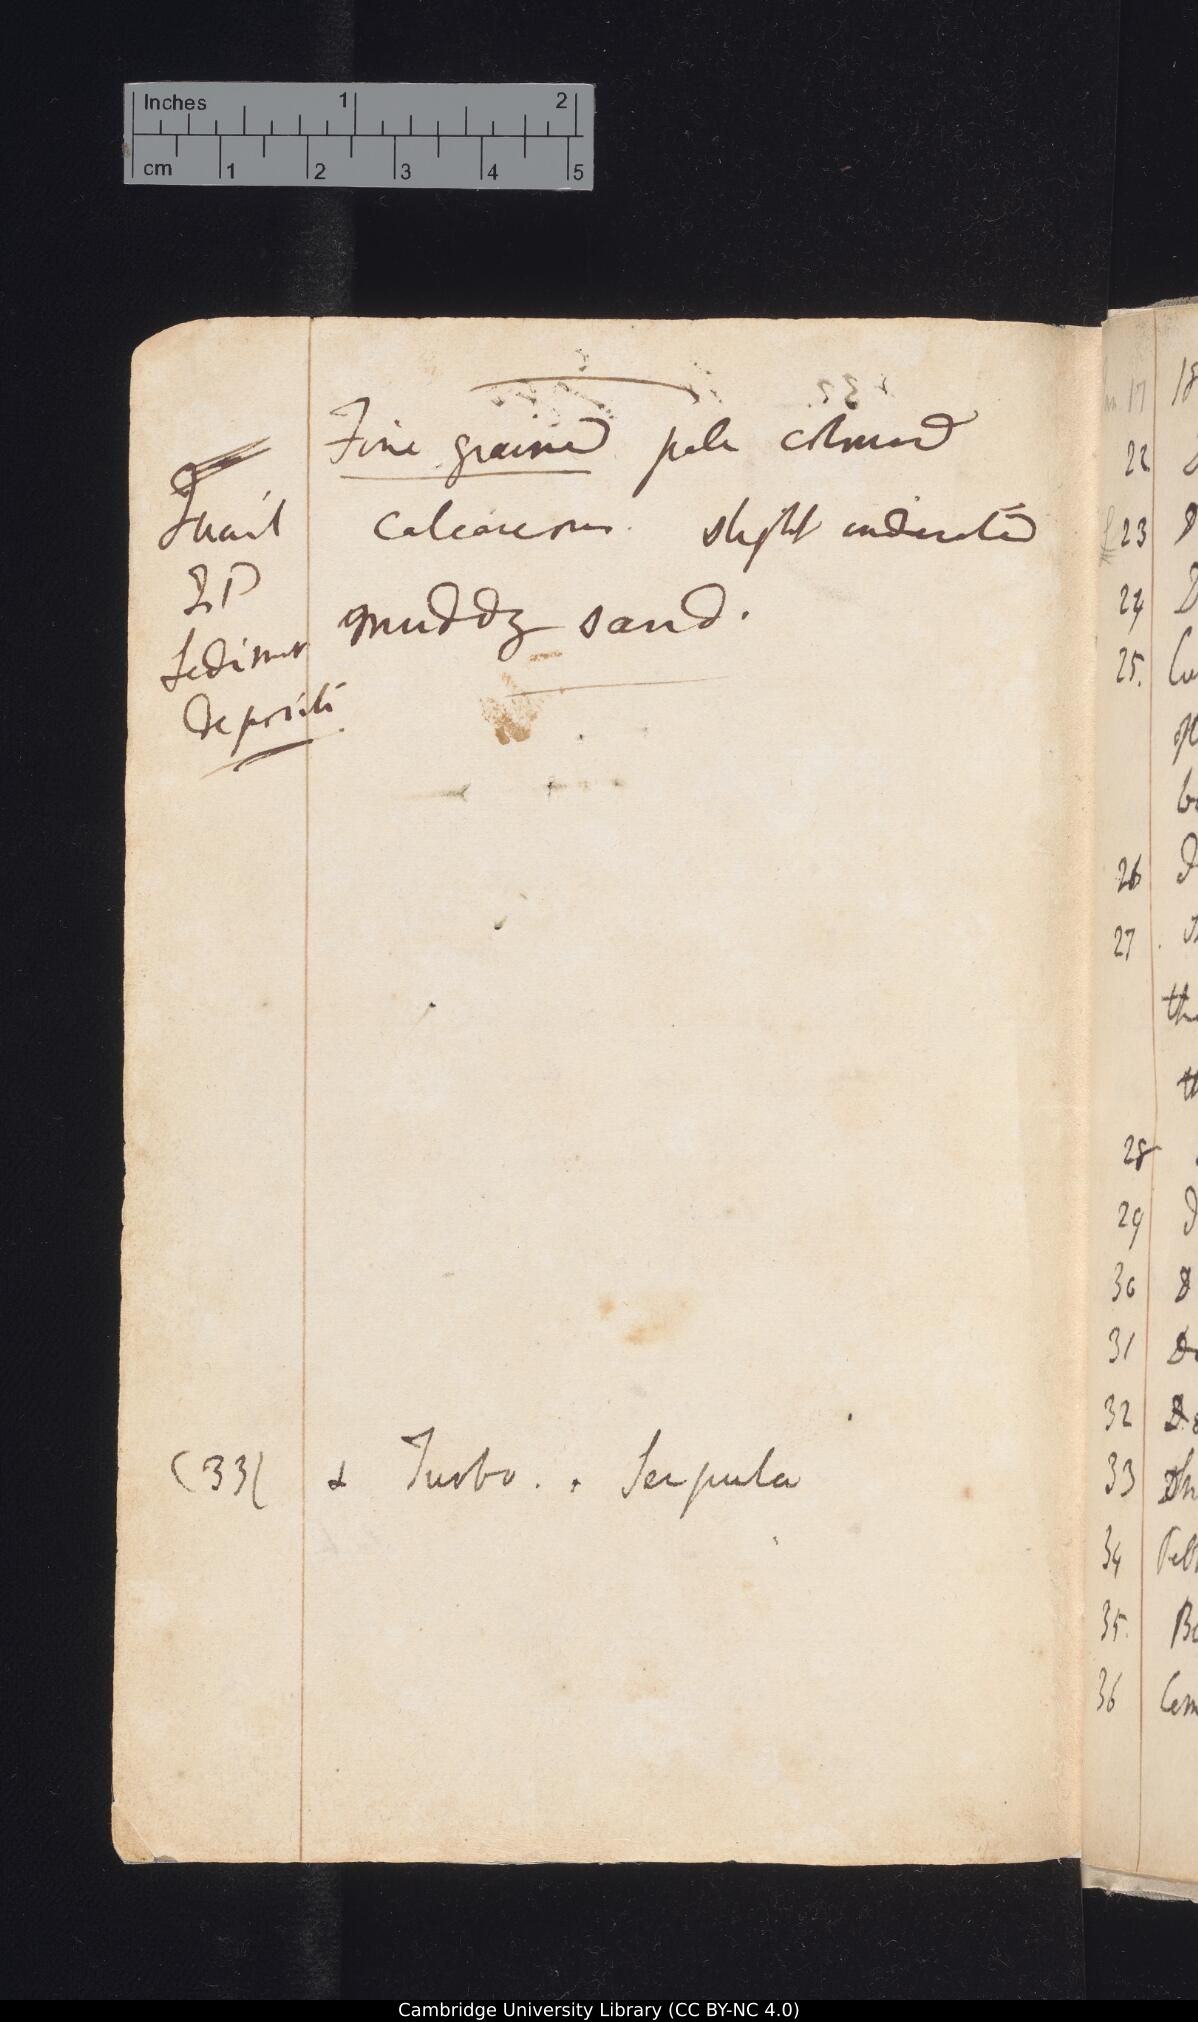 Inches 1 2
cm 1 2 3 4 5
Fine grained pale coloured
Quail calcareous slight indurated
muddy sand.
Sedimen
deposits
(33( & Turbo. + Serpula
17 18
22
23
24
25.
26
27
28
29
30
31
32
33
34
35.
36
Cambridge University Library (CC BY-NC 4.0)